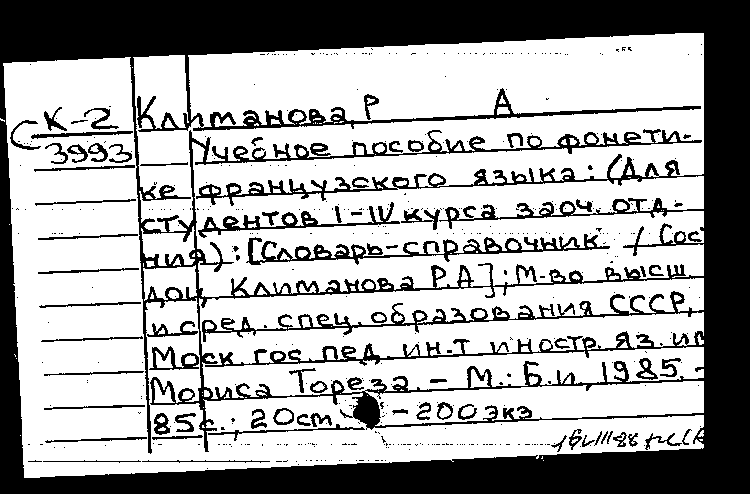 К-2 Климанова, Р А
3993 Учебное пособие по фонети-
ке французского языка: (Для
студентов I-IV курса заоч. отд-
ния): [Словарь-справочник / Сос
доц. Климанова Р.А]; М-во высш
и сред. спец. образования СССР,
Моск. гос. пед. ин-т иностр. яз. им
Мориса Тореза. - М.: Б.и, 1985. -
85с.; 20см. - 200 экз